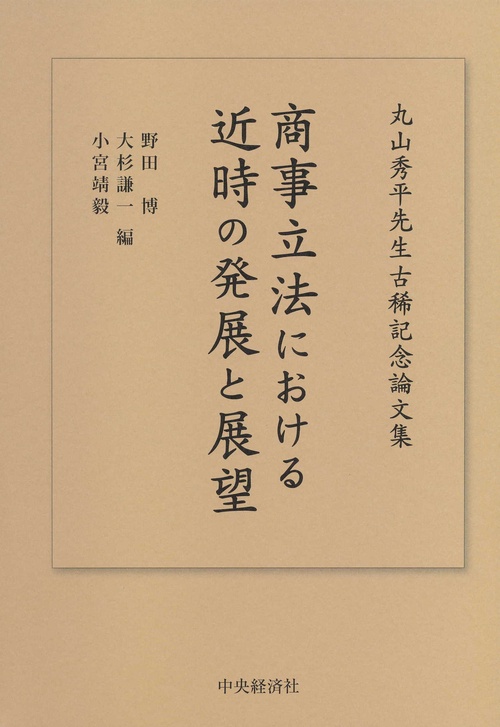 丸山秀平先生古稀記念論文集
商事立法における
近時の発展と展望
野田 博
大杉謙一 編
小宮靖毅
中央経済社